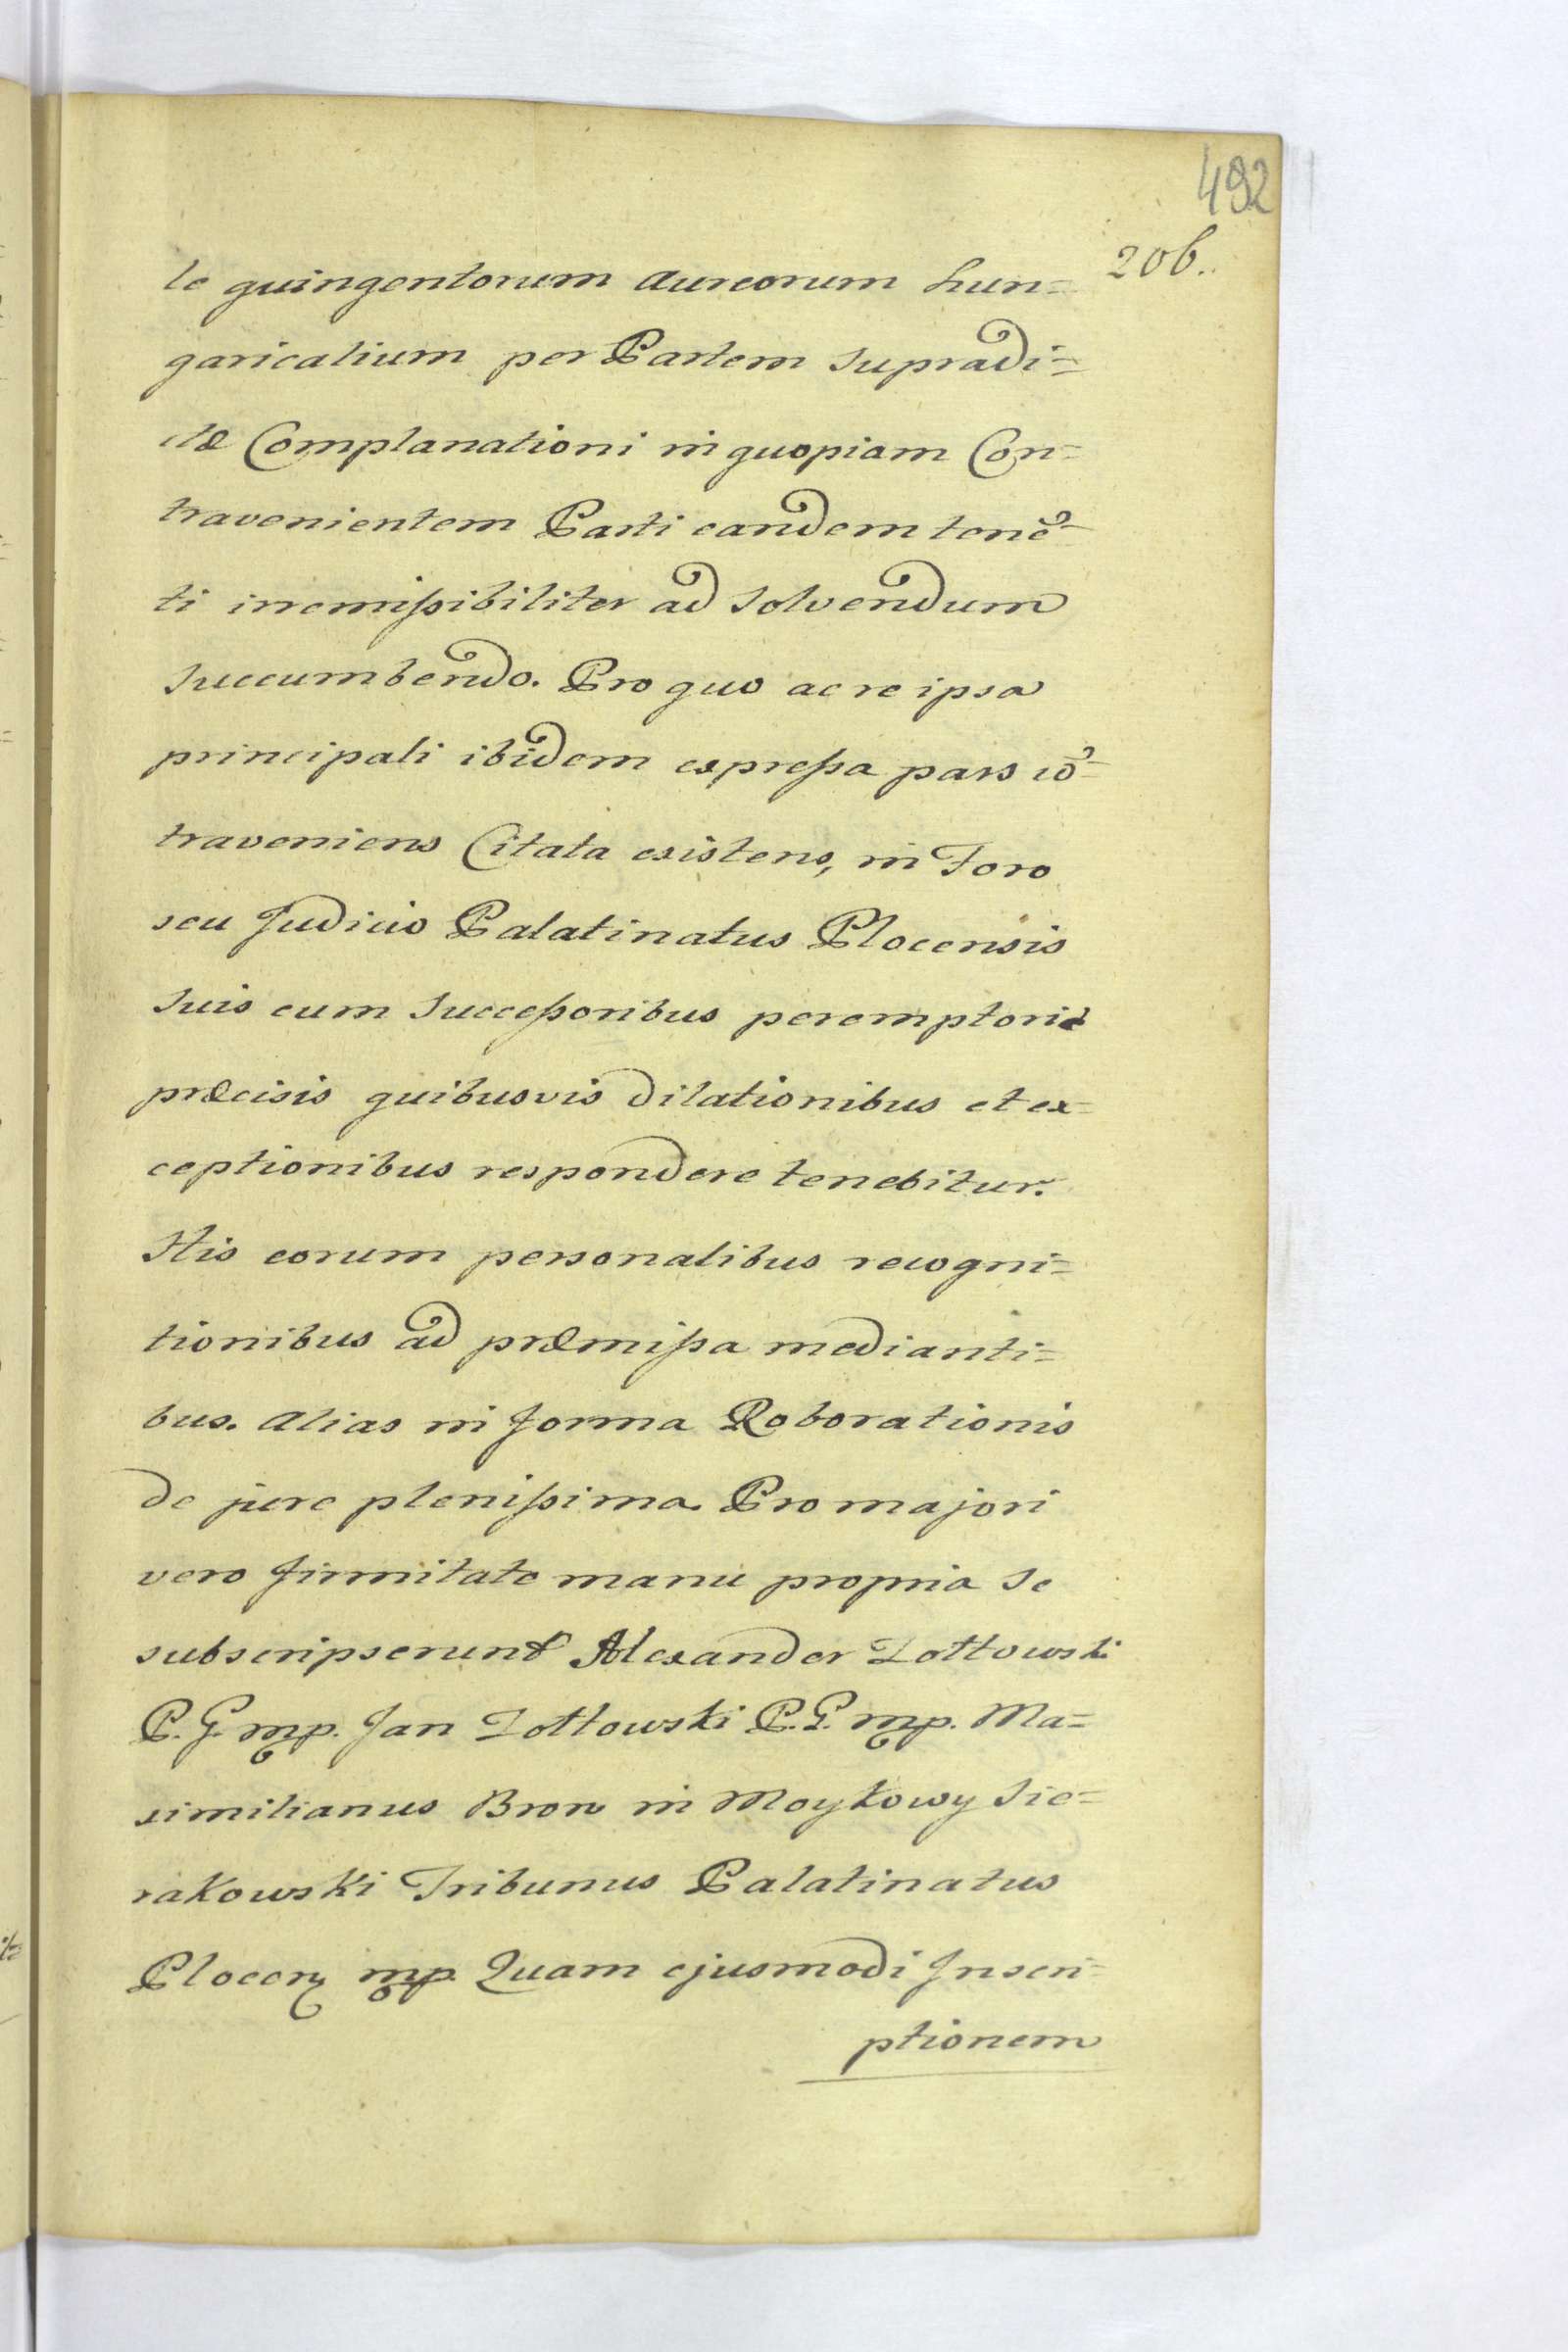 492
206.
le quingentorum Aureorum hun=
garicalium per Partem supradi=
ctæ Complanationi in quopiam Con=
travenientem Parti eandem tenē=
ti irremissibiliter ad solvendum
succumbendo. Pro quo ac re ipsa
principali ibidem expressa pars cō=
traveniens Citata existens, in Foro
seu Judicio Palatinatus Plocensis
suis cum Successoribus peremptorie
præcisis quibusvis dilationibus et ex=
ceptionibus respondere tenebitur.
His eorum personalibus recogni=
tionibus ad præmissa medianti=
bus. Alias in forma Roborationis
de jure plenissima. Pro majori
vero firmitate manu propria se
subscripserunt Alexander Zottowski
P.G. mp. Jan Zottowski P.G. mp. Ma=
ximilianus Bron in Moykowy Sie=
rakowski Tribunus Palatinatus
Plocen mp. Quam ejusmodi Inscri=
ptionem